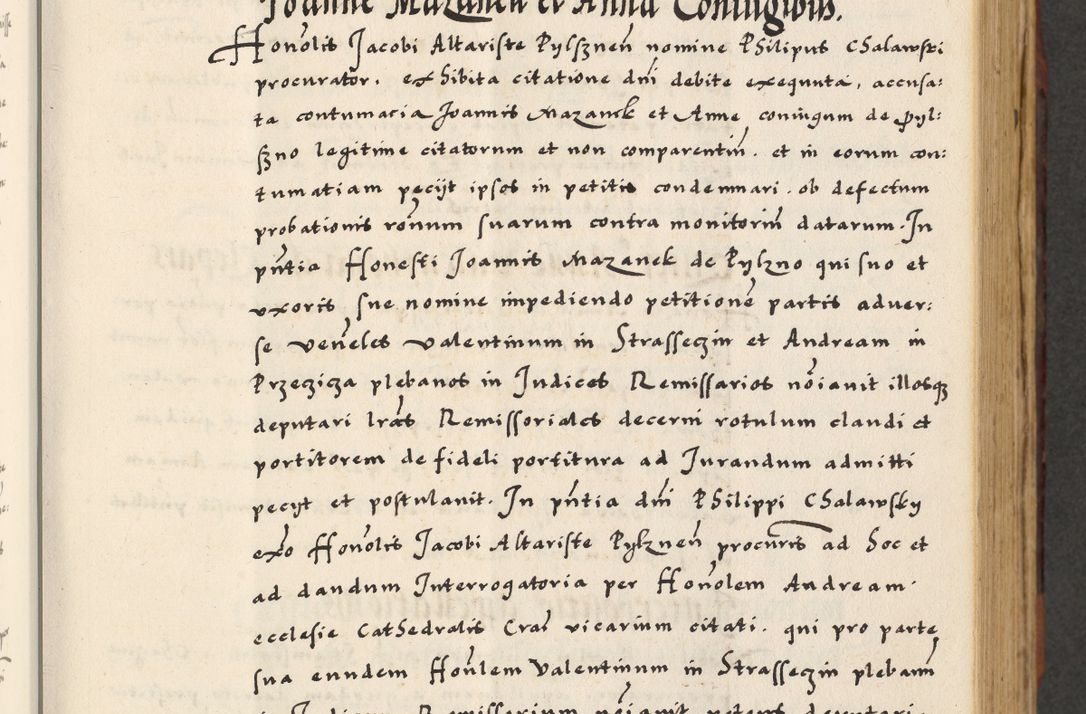 Joanne Mazanek et Anna Coniugibus.
Honorlis Jacobi Altariste Pylsznen nomine Philipus Chalawski
procurator, exhibita citatione dni debite exequuta, accusa-
ta contumacia Joannis Mazanek et Anne coniugum de Pyl:
szno legitime citatorum et non comparentiu. et in eorum con:
tumatiam peciit ipsos in petitis condemnari. ob defectum
probationis ronum suarum contra monitoriu datarum. In
pntia Honesti Joannis Mazanek de Pylzno qui suo et
uxoris sue nomine impediendo petitione partis adver:
se veneles Valentinum in Strasseczin et Andream in
Przeczicza plebanos in Judices Remissarios noiavit illosq
deputari lras Remissoriales decerni rotulum claudi et
portitorem de fideli portitura ad Jurandum admitti
peciit et postulavit. In pntia dni Philippi Chalawsky
exo Honolis Jacobi Altariste Pylznen procuris ad hoc et
ad dandum Interrogatoria per Honolem Andream
ecclesie Cathedralis Cras vicarium citati. qui pro parte
sua eundem Honlem Valentinum in Strasseczin plebanu
in Judicem Remissarium noiavit petens deputari